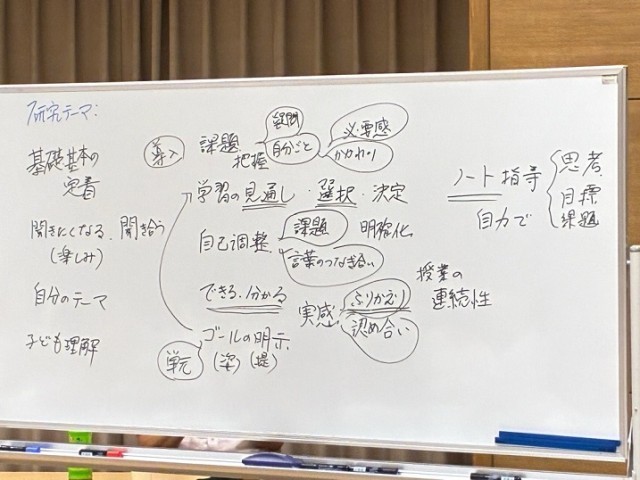 研究テーマ:
基礎基本の
定着
聞きたくなる、聞き合う
(楽しみ)
自分のテーマ
子ども理解
導入 課題 疑問
把握 自分ごと 必要感
かかわり
学習の見通し・選択・決定
自己調整・課題 明確化
言葉のつなぎ合い
できる・分かる
実感 ふりかえり
認め合い
単元 ゴールの明示
(姿)(提)
授業の
連続性
ノート指導
自力で
思考
目標
課題